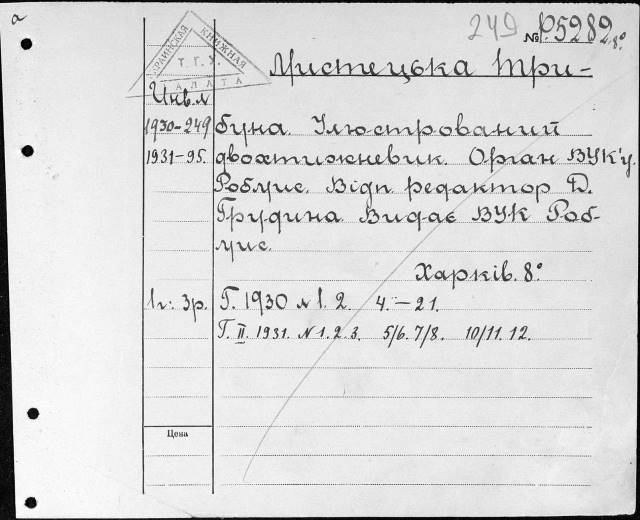 а
249 № Р.5282 8°
УКРАИНСКАЯ КНИЖНАЯ
Т.Г.У.
ПАЛАТА
Мистецька Три-
Инв. №
1930-249 буна. Ілюстрований
1931-95. двохтижневик. Орган ВУК'у
Робмис. Відп. редактор Д.
Грудина. Видає ВУК Роб-
мис.
Харків. 8°
1г: 3р. Г. 1930 № 1. 2. 4.–21.
Г. II. 1931. № 1. 2. 3. 5/6. 7/8. 10/11. 12.
Цена